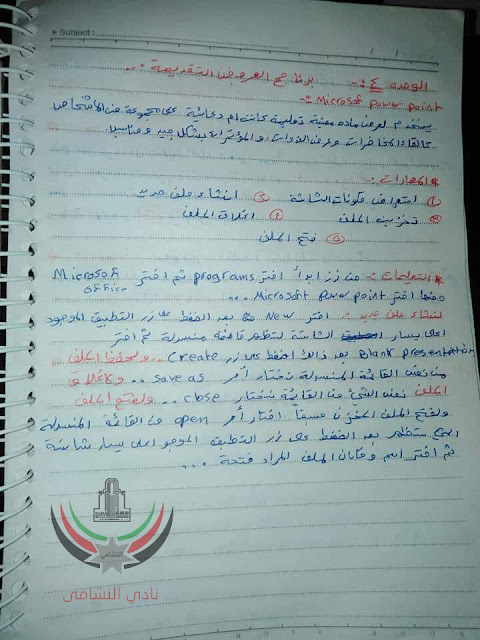 Subject :
الوحده ٤ :- برنامج العروض التقديمية :..
Microsoft Power Point :-
يستخدم لعرض ماده معينة تعليمية كانت ام دعائية على مجموعة من الاشخاص
كالقاء المحاضرات وعرض الندوات والمؤتمرات بشكل جيد ومناسب
* المهارات :-
① استعراض مكونات الشاشة ② انشاء ملف جديد
③ تخزين الملف ④ اغلاق الملف
⑤ فتح الملف
* التعليمات :- من زر ابدأ اختر programs ثم اختر Microsoft office
ومنها اختر Microsoft Power point ...
لنشاء ملف جديد :- اختر New من بعد الضغط على زر التطبيق الموجود
اعلى يسار الشاشة لتظهر قائمة منسدلة ثم اختر
Blank presentation بعد ذالك اضغط على زر Create .. ولحفظ الملف
من نفس القائمة المنسدلة نختار أمر save as .. وكاغلاق
الملف نفس الشئ من القائمة نختار close .. ولفتح الملف
ولفتح الملف المخزن مسبقاً اختار أمر open من القائمة المنسدلة
ستظهر بعد الضغط على زر التطبيق الموجو اعلى يسار شاشة
ثم اختر اسم ومكان الملف المراد فتحة ...
النشامى
نادي النشامى